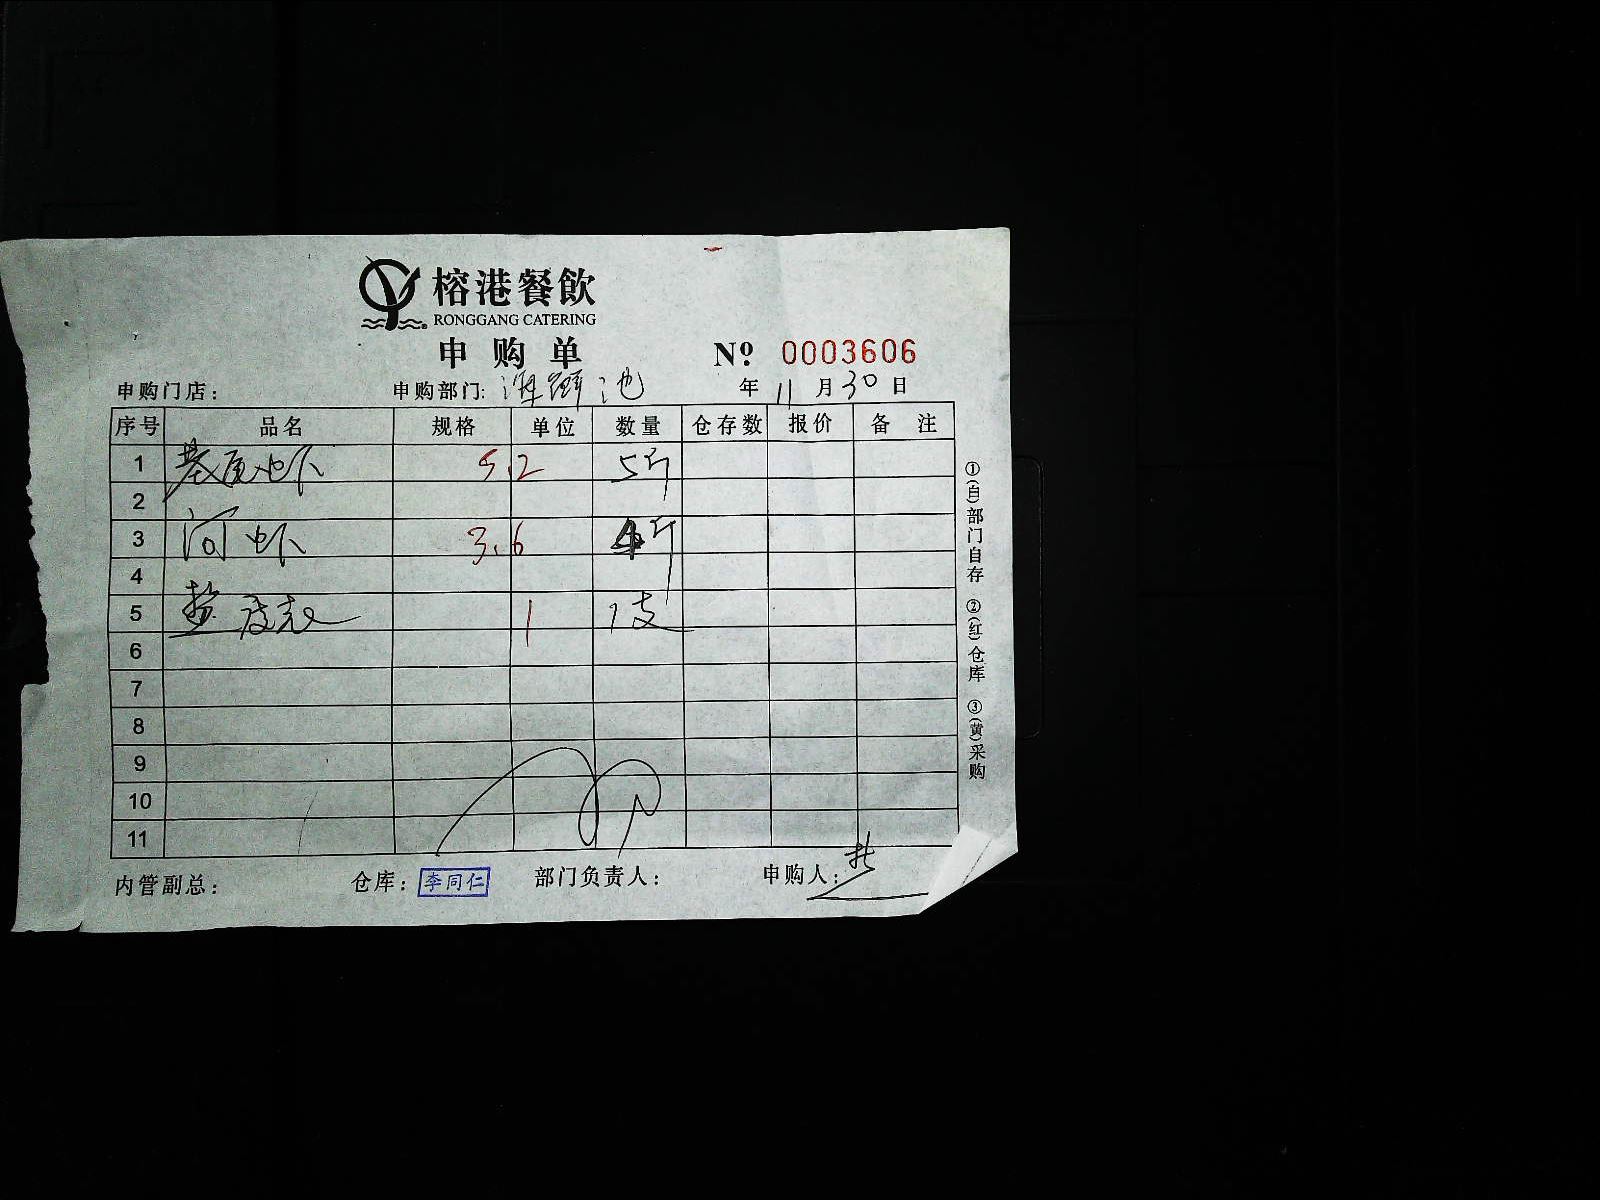 榕港餐飲
RONGGANG CATERING
申购单 Nº 0003606
申购门店： 申购部门: 海鲜池 年 11 月 30 日
序号 品名 规格 单位 数量 仓存数 报价 备注
1 基围虾 5.2 5斤
2
3 河虾 3.6 4斤
4
5 1 1支
6
7
8
9
10
11
①(白)部门自存 ②(红)仓库 ③(黄)采购
内管副总： 仓库：李同仁 部门负责人： 申购人：